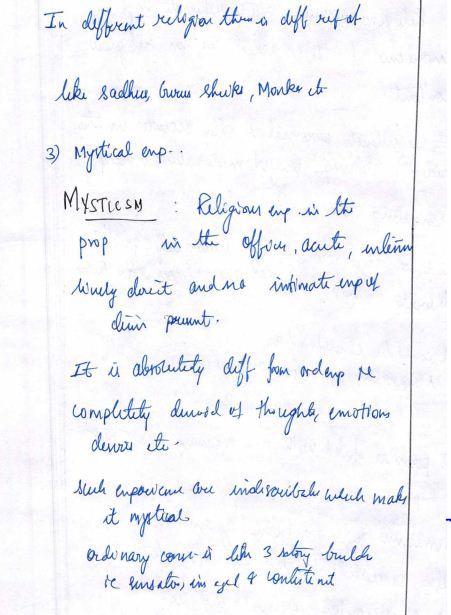 In different religion there is diff ref of
like sadhus, Gurus sheiks, Monks etc
3) Mystical exp..
MYSTICSM : Religious exp in the
prop in the acute,
direct and no intimate exp of
present.
It is absolutely diff from ord exp ie
completely devoid of thoughts, emotions
desires etc.
Such experience are indiscribable which makes
it mystical
ordinary is like 3 story builds
ie &